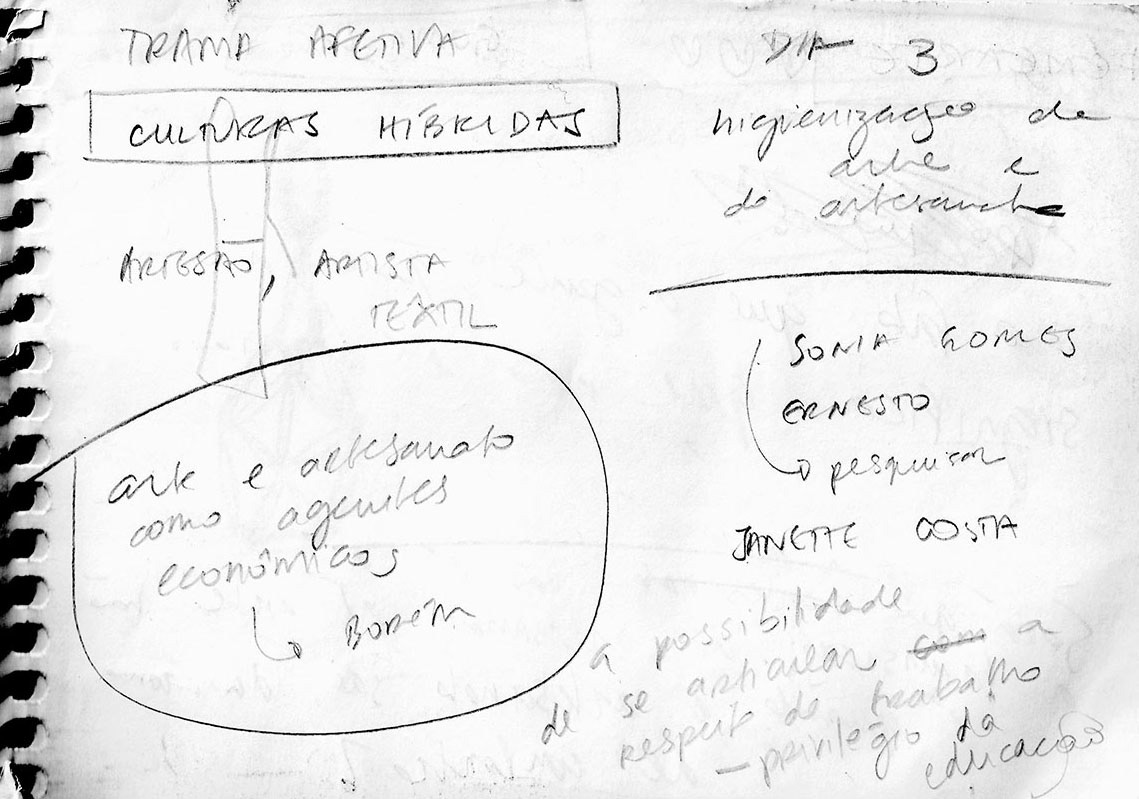 TRAMA AFETIVA
CULTURAS HÍBRIDAS
ARTESÃO, ARTISTA
TÊXTIL
arte e artesanato
como agentes
econômicos
DIA 3
higienização da
arte e
do artesanato
SONIA GOMES
ERNESTO
pesquisar
JANETTE COSTA
a possibilidade
de se articular com a
respeito do trabalho
— privilégio da
educação